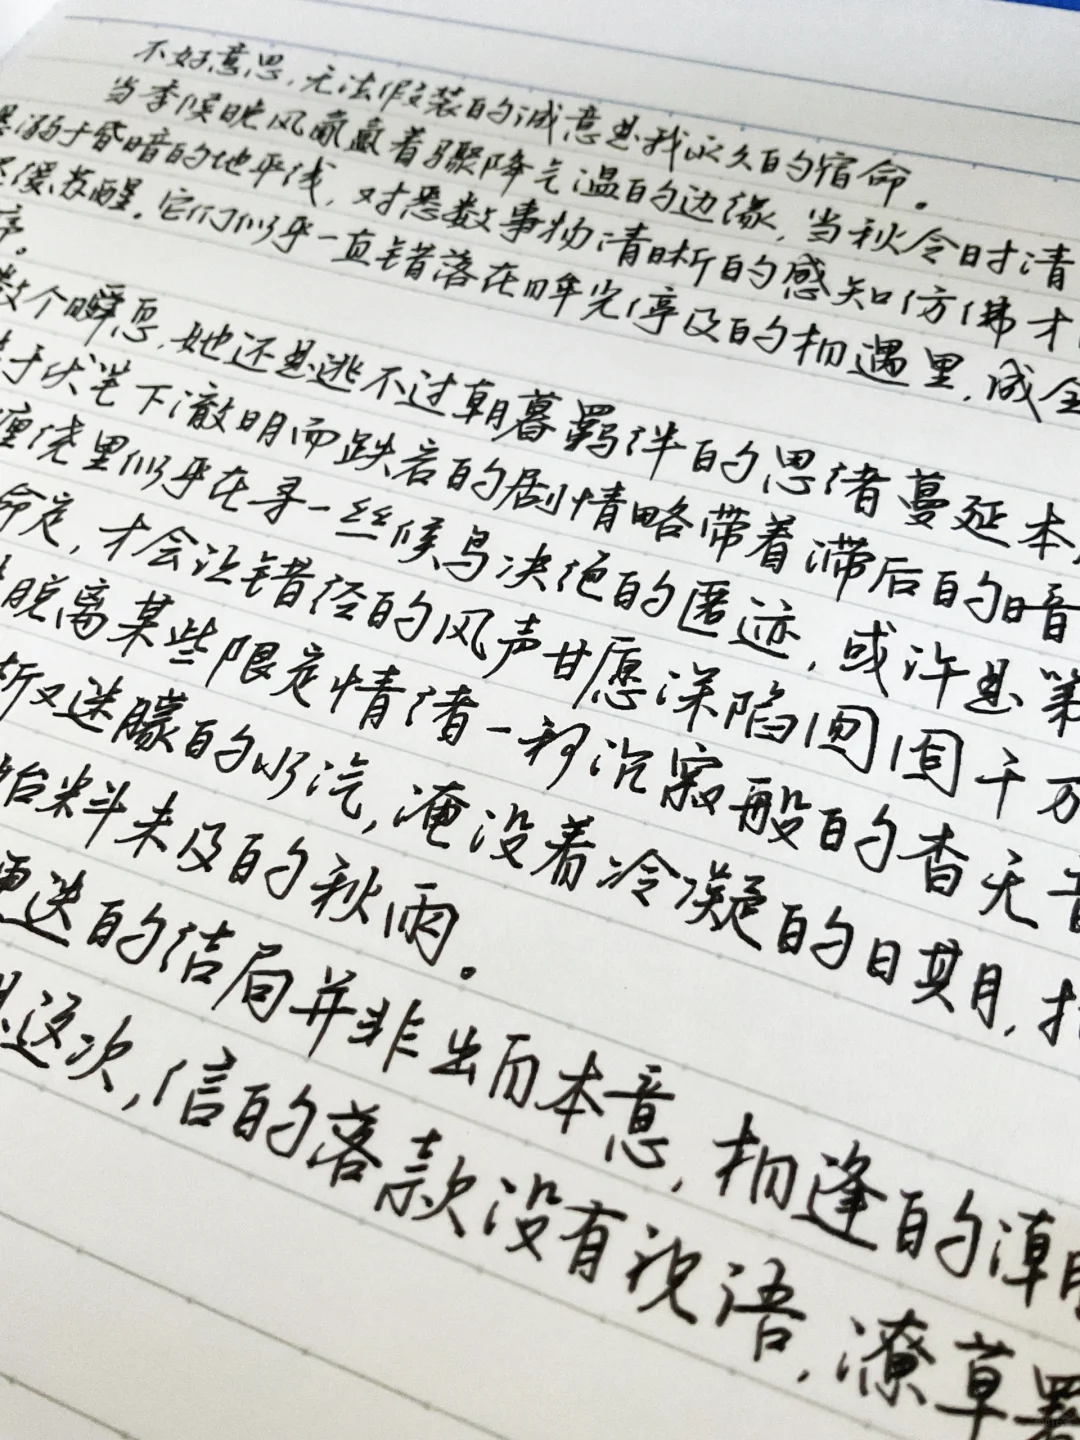 不好意思，无法假装的诚意是我永久的宿命。
当季候晚风氤氲着骤降气温的边缘，当秋令时清
溺于昏暗的地平线，对悉数事物清晰的感知仿佛才
缓苏醒，它们似乎一直错落在晖光停及的相遇里，成全
序。
数个瞬息，她还是逃不过朝暮羁绊的思绪蔓延本
于伏笔下澈明而跌宕的剧情略带着滞后的暗
缠绕里似乎在寻一丝候鸟决绝的匿迹，或许是第
命定，才会让错径的风声甘愿深陷囫囵千万
脱离某些限定情绪一秒沉寂般的杳无音
晰又迷朦的水汽，淹没着冷凝的日期，把
始料未及的秋雨。
更迭的结局并非出而本意，相逢的潮
是这次，信的落款没有祝语，潦草署